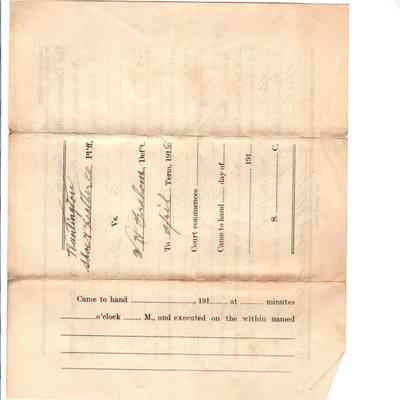 Huntington
Shoe & Leather Co Pl'ff.
Vs.
Def't.
To April Term, 191
Court commences
Came to hand day of
191
S. C.
Came to hand , 191 at minutes
o'clock M., and executed on the within named